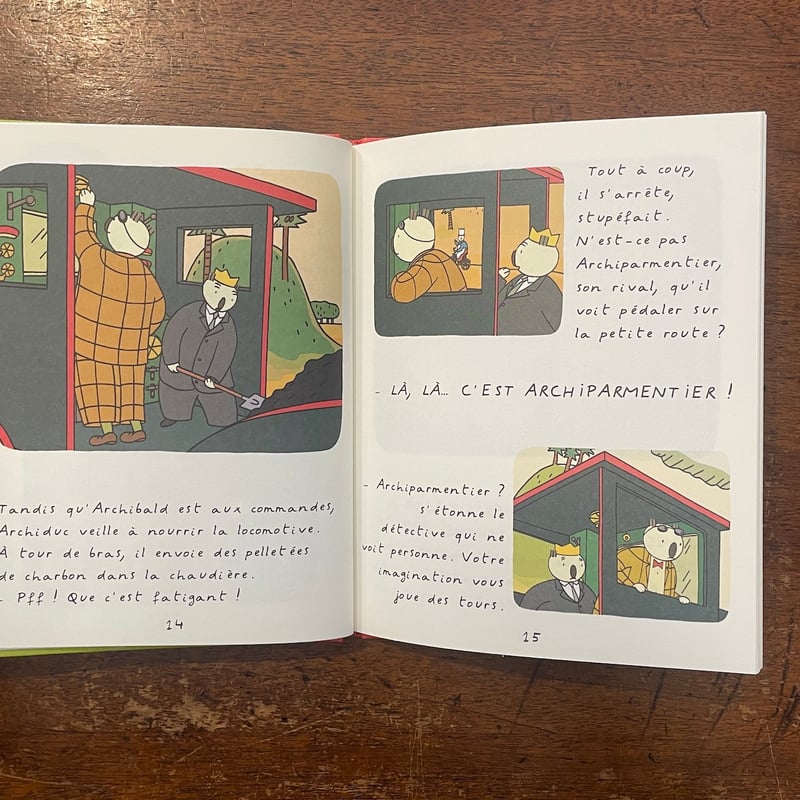 Tandis qu'Archibald est aux commandes,
Archiduc veille à nourrir la locomotive.
À tour de bras, il envoie des pelletées
de charbon dans la chaudière.
- Pff ! Que c'est fatigant !
14
Tout à coup,
il s'arrête,
stupéfait.
N'est-ce pas
Archiparmentier,
son rival, qu'il
voit pédaler sur
la petite route ?
- LÀ, LÀ... C'EST ARCHIPARMENTIER !
- Archiparmentier ?
s'étonne le
détective qui ne
voit personne. Votre
imagination vous
joue des tours.
15